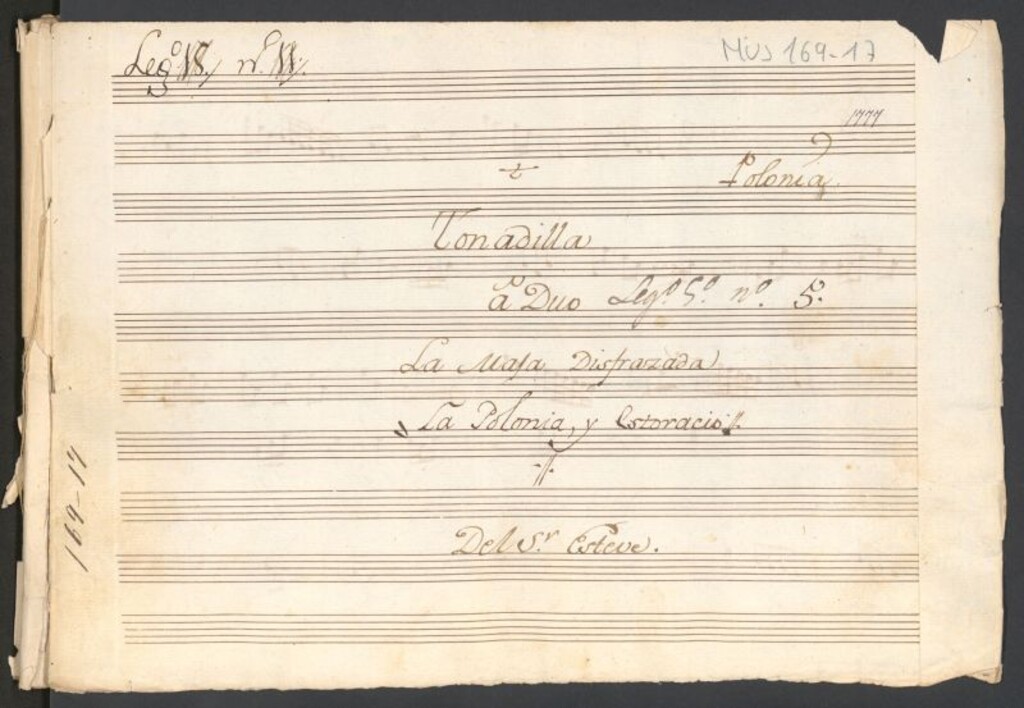 Leg.º 18. n.º 11.
MUS 169-17
1777
Polonia
Tonadilla
a Duo Leg.º 5.º n.º 5.
La Maja Disfrazada
La Polonia, y Estoracio //.
Del S.r Esteve.
169-17